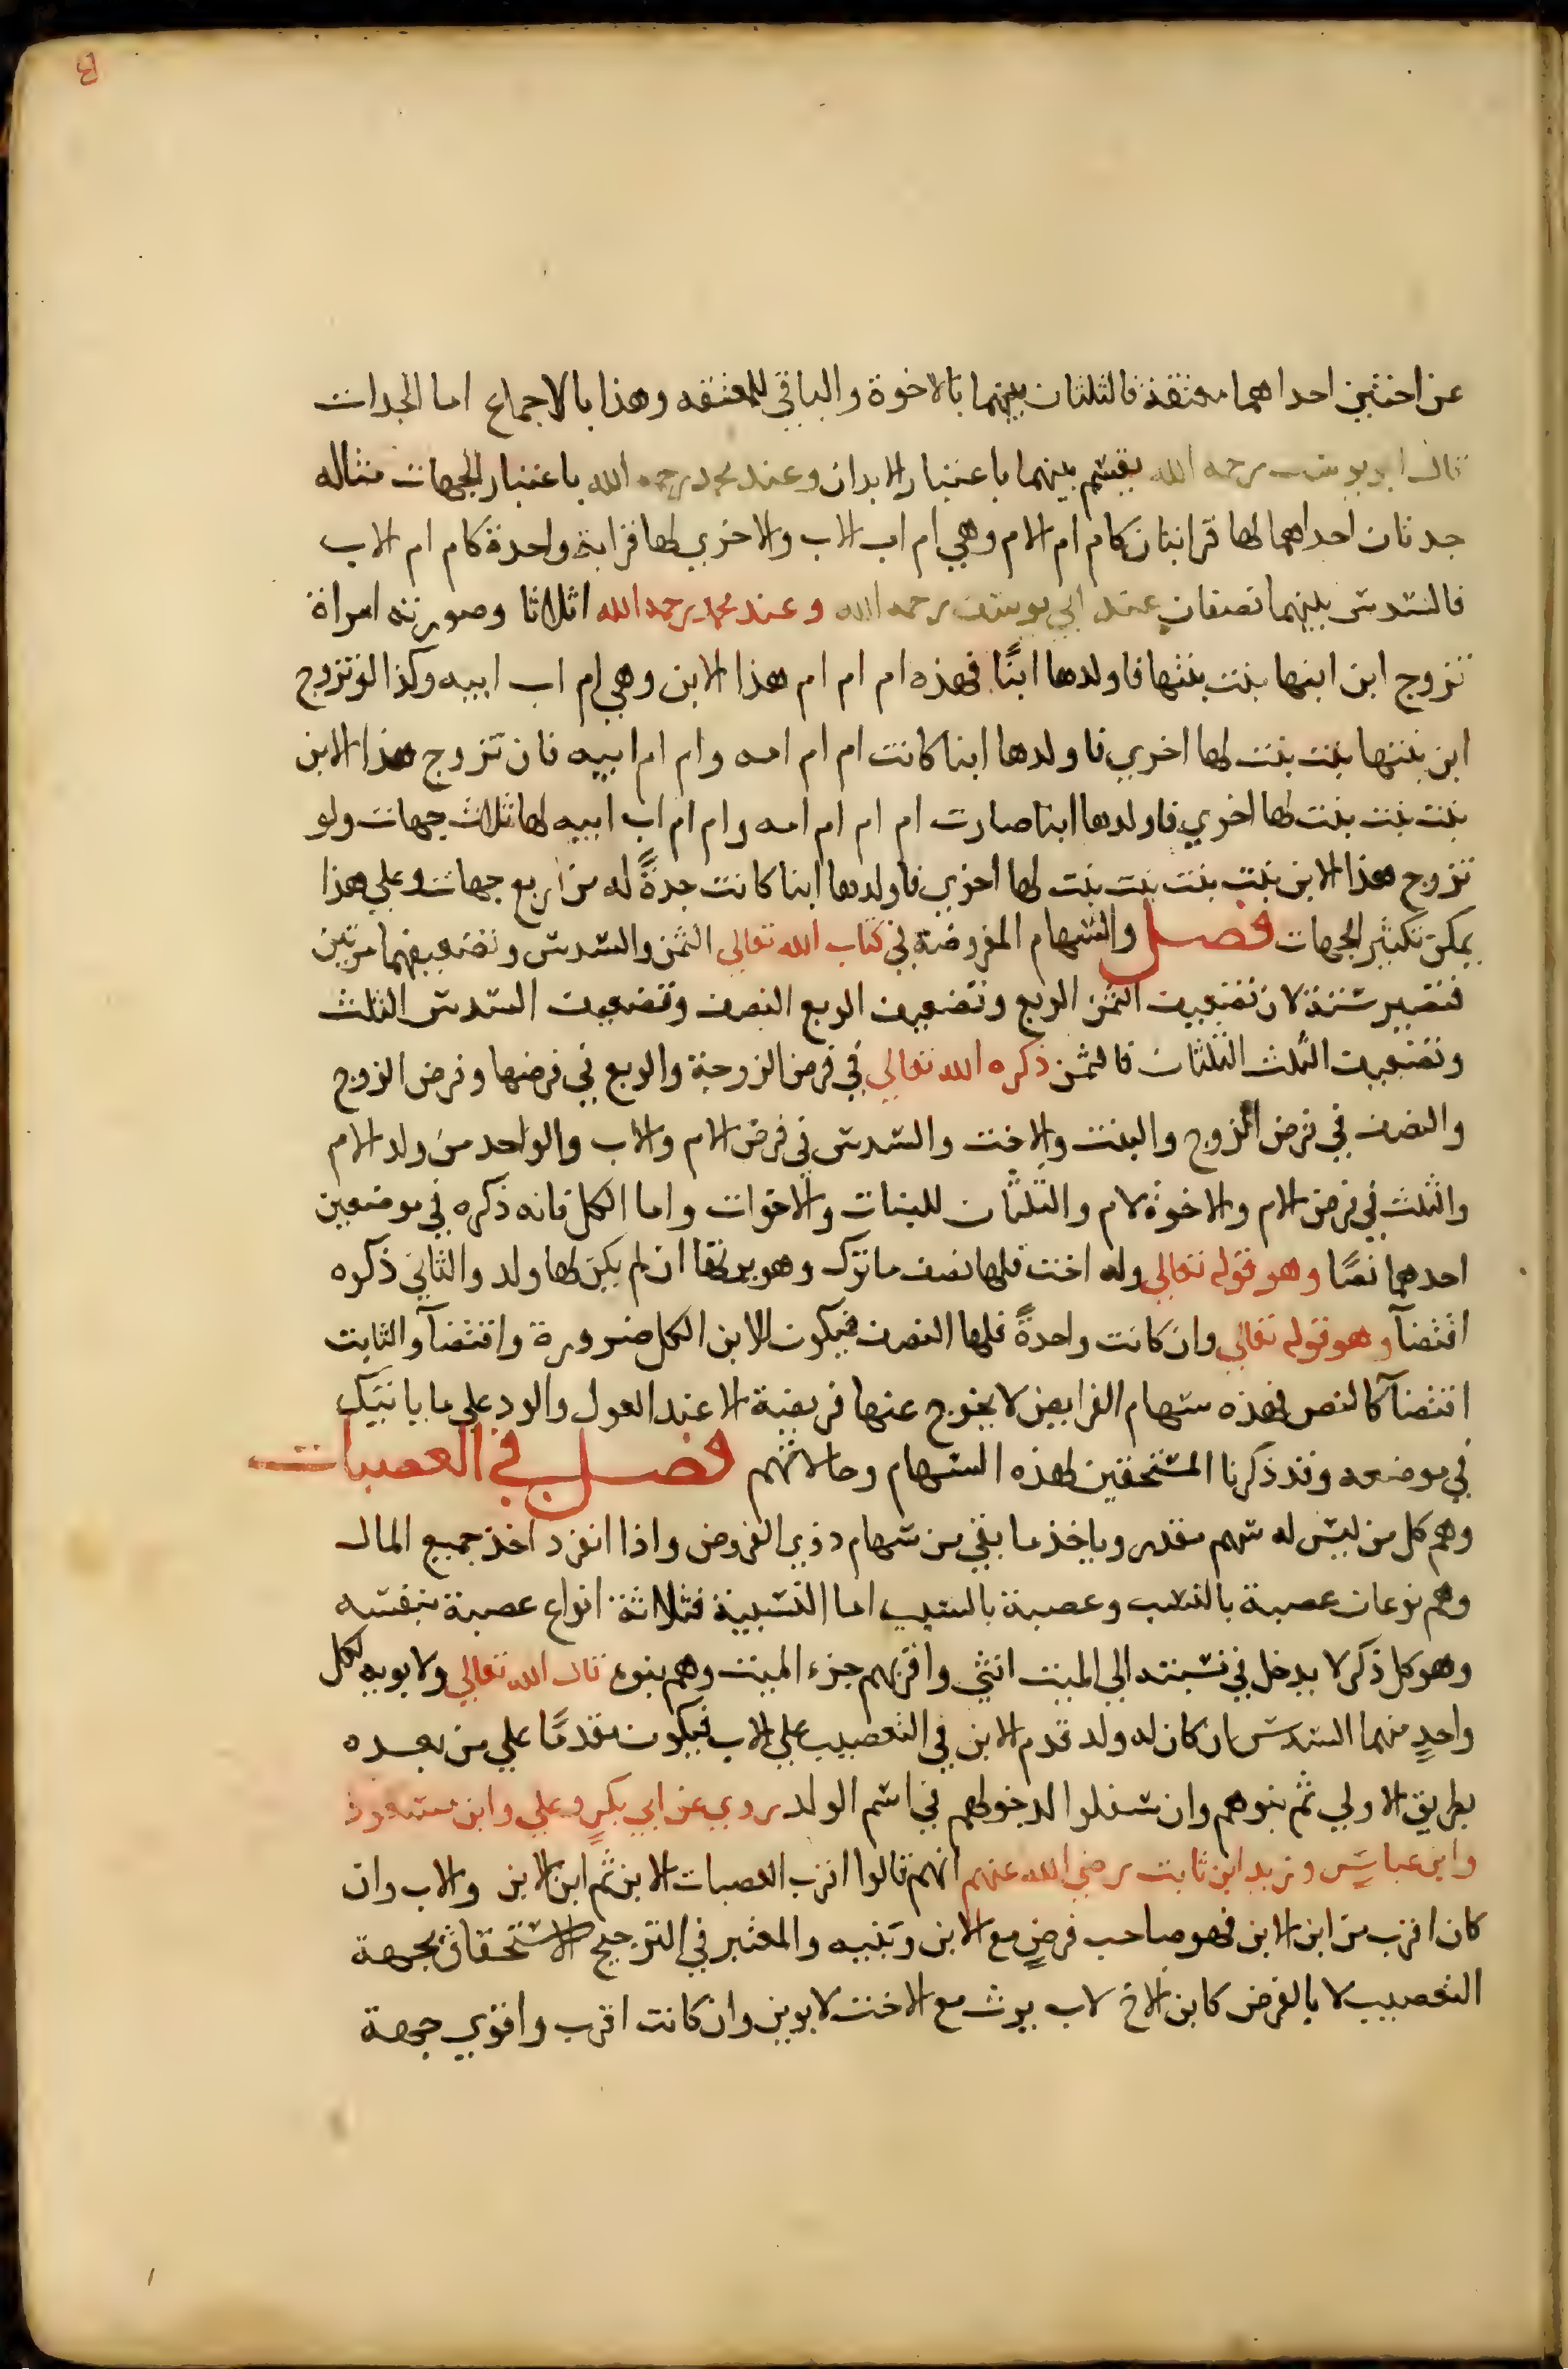 عن اختين احداهما معتقة فالثلثان بينهما بالاخوة والباقي للمعتقه وهذا بالاجماع اما الجدات
قال ابو يوسف رحمه الله يقسم بينهما باعتبار الابدان وعند محمد رحمه الله باعتبار الجهات مثاله
جدتان احداهما لها قرابتان كام ام الام وهي ام اب الاب والاخري لها قرابة واحدة كام ام الاب
فالسدس بينهما نصفان عند ابي يوسف رحمه الله وعند محمد رحمه الله اثلاثا وصورته امراة
تزوج ابن ابنها بنت بنتها فاولدها ابنًا فهذه ام ام ام هذا الابن وهي ام اب ابيه وكذا لو تزوج
ابن بنتها بنت بنت لها اخري فاولدها ابنا كانت ام ام امه وام ام ابيه فان تزوج هذا الابن
بنت بنت بنت لها اخري فاولدها ابنا صارت ام ام ام امه وام ام اب ابيه لها ثلاث جهات ولو
تزوج هذا الابن بنت بنت بنت بنت لها اخري فاولدها ابنا كانت جدةً له من اربع جهات وعلي هذا
يمكن تكثير الجهات فصل والسهام المفروضة في كتاب الله تعالي الثمن والسدس وتضعيفهما مرتين
فتصير ستة لان تضعيف الثمن الربع وتضعيف الربع النصف وتضعيف السدس الثلث
وتضعيف الثلث الثلثان فالثمن ذكره الله تعالي في فرض الزوجة والربع في فرضها وفرض الزوج
والنصف في فرض الزوج والبنت والاخت والسدس في فرض الام والاب والواحد من ولد الام
والثلث في فرض الام والاخوة لام والثلثان للبنات والاخوات واما الكل فانه ذكره في موضعين
احدهما نصًا وهو قوله تعالي وله اخت فلها نصف ما ترك وهو يرثها ان لم يكن لها ولد والثاني ذكره
اقتضآ وهو قوله تعالي وان كانت واحدةً فلها النصف فيكون للابن الكل ضرورة واقتضآ والثابت
اقتضآ كالنص فهذه سهام الفرايض لا يخرج عنها فريضة الا عند العول والرد علي ما ياتيك
في موضعه وقد ذكرنا المستحقين لهذه السهام وحالاتهم فصل في العصبات
وهم كل من ليس له سهم مقدر وياخذ ما بقي من سهام ذوي الفروض واذا انفرد اخذ جميع المال
وهم نوعان عصبة بالنسب وعصبة بالسبب اما النسبية فثلاثة انواع عصبة بنفسه
وهو كل ذكر لا يدخل في نسبته الي الميت انثي واقربهم جزء الميت وهم بنوه قال الله تعالي ولابويه لكل
واحدٍ منهما السدس ان كان له ولد قدم الابن في التعصيب علي الاب فيكون مقدمًا علي من بعده
بطريق الاولي ثم بنوهم وان سفلوا لدخولهم في اسم الولد روي عن ابي بكرٍ وعلي وابن مسعودٍ
وابن عباسٍ وزيد ابن ثابت رضي الله عنهم انهم قالوا اقرب العصبات الابن ثم ابن الابن والاب وان
كان اقرب من ابن الابن فهو صاحب فرضٍ مع الابن وبنيه والمعتبر في الترجيح الاستحقاق بجهة
التعصيب لا بالفرض كابن الاخ لاب يرث مع الاخت لابوين وان كانت اقرب واقوي جهة